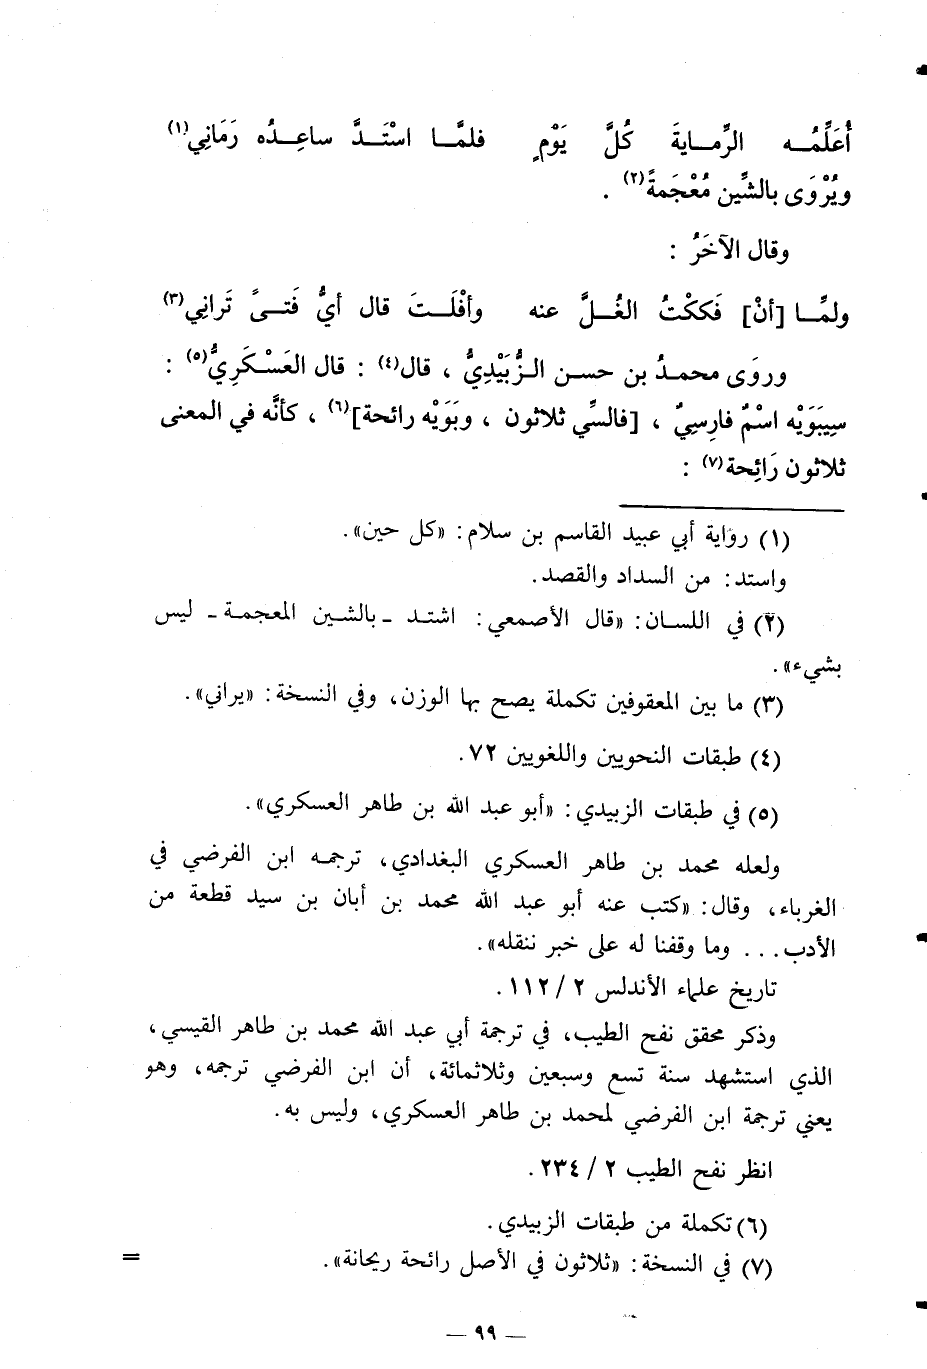 أُعَلِّمُـــه الرِّمـــايةَ كُلَّ يَوْمٍ فلمَّـــا اسْتَـــدَّ ساعِـــدُه رَمَانِي(١)
ويُرْوَى بالشِّين مُعْجَمةً(٢) .
وقال الآخَرُ :
ولمَّـــا [أنْ] فَككْتُ الغُـــلَّ عنه وأفْلَـــتَ قال أيُّ فَتـــىً تَرانِي(٣)
وروَى محمـدُ بن حسـن الـزُّبَيْدِيُّ ، قال(٤) : قال العَسْـكَرِيُّ(٥) :
سِيبَوَيْه اسْمٌ فارِسِيٌ ، [فالسِّي ثلاثون ، وبَوَيْه رائحة](٦) ، كأنَّه في المعنى
ثلاثون رَائِحة(٧) :
(١) رواية أبي عبيد القاسم بن سلام: «كل حين».
واستد: من السداد والقصد.
(٢) في اللسـان: «قال الأصمعي: اشتـد ـ بالشـين المعجمـة ـ ليس
بشيء».
(٣) ما بين المعقوفين تكملة يصح بها الوزن، وفي النسخة: «يراني».
(٤) طبقات النحويين واللغويين ٧٢.
(٥) في طبقات الزبيدي: «أبو عبد الله بن طاهر العسكري».
ولعله محمد بن طاهر العسكري البغدادي، ترجمـه ابن الفرضي في
الغرباء، وقال: «كتب عنه أبو عبد الله محمد بن أبان بن سيد قطعة من
الأدب... وما وقفنا له على خبر ننقله».
تاريخ علماء الأندلس ٢ / ١١٢.
وذكر محقق نفح الطيب، في ترجمة أبي عبد الله محمد بن طاهر القيسي،
الذي استشهد سنة تسع وسبعين وثلاثمائة، أن ابن الفرضي ترجمه، وهو
يعني ترجمة ابن الفرضي لمحمد بن طاهر العسكري، وليس به.
انظر نفح الطيب ٢ / ٢٣٤.
(٦) تكملة من طبقات الزبيدي.
(٧) في النسخة: «ثلاثون في الأصل رائحة ريحانة». =
— ٩٩ —